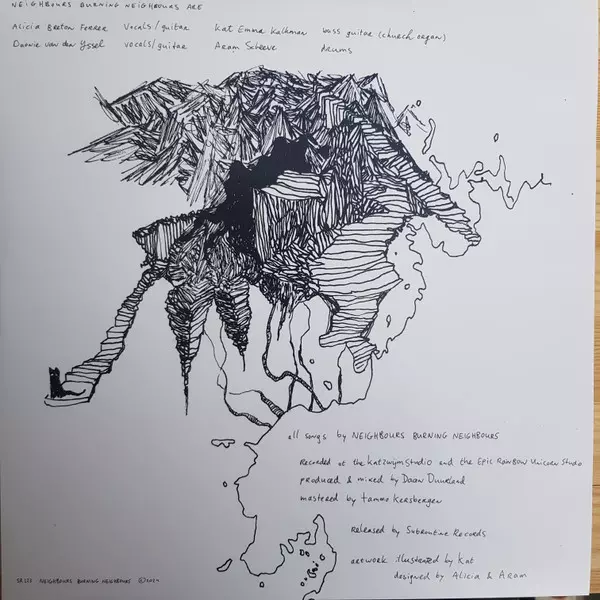 NEIGHBOURS BURNING NEIGHBOURS ARE
Alicia Breton Ferrer vocals/guitar Kat Emma Kalkman bass guitar (church organ)
Daanie van den Yssel vocals/guitar Aram Scheeve drums
all songs by NEIGHBOURS BURNING NEIGHBOURS
Recorded at the Katzwijm Studio and the Epic Rainbow Unicorn Studio
produced & mixed by Daan Duurland
mastered by Tammo Kersbergen
released by Subroutine Records
artwork illustrated by Kat
designed by Alicia & Aram
NEIGHBOURS BURNING NEIGHBOURS ©2024